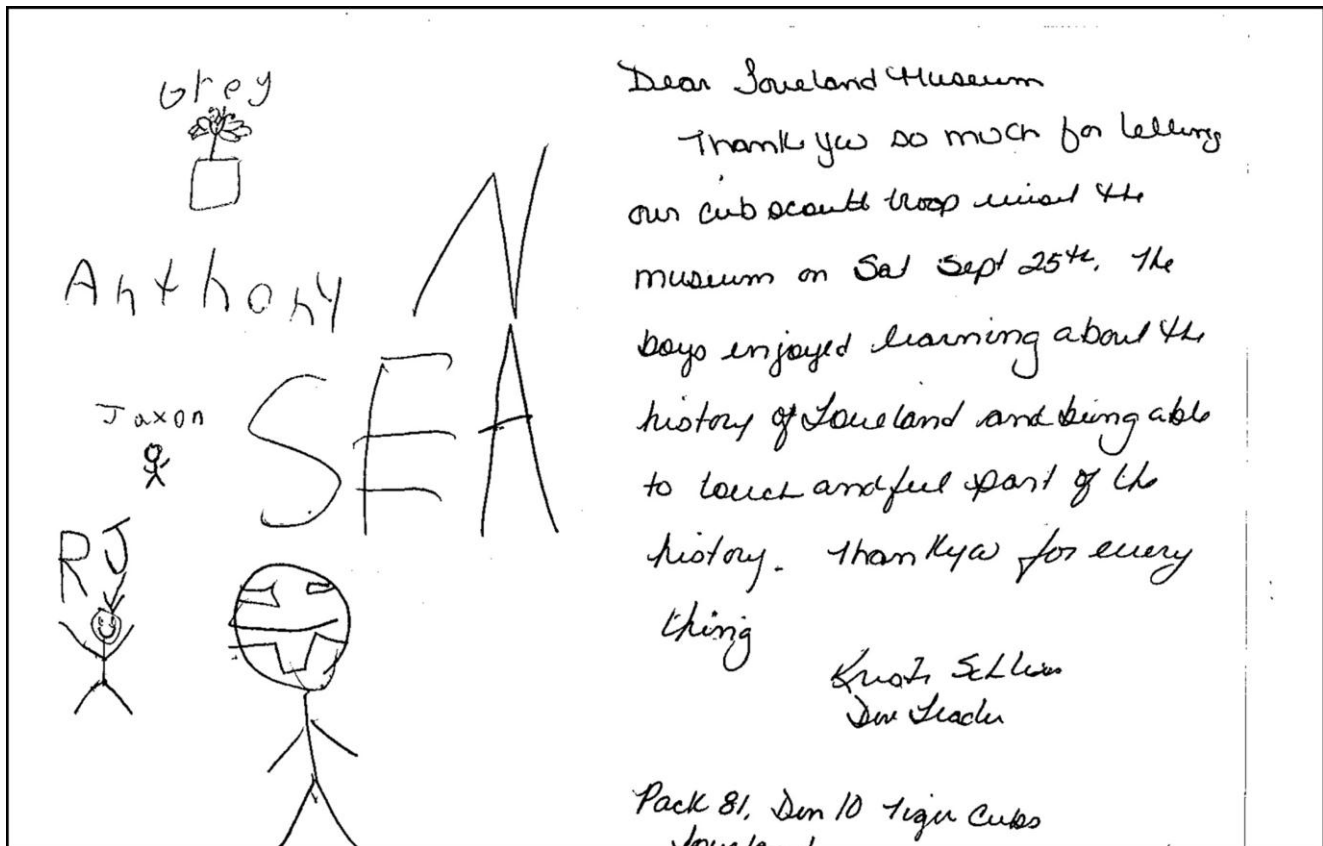 Grey
Anthony
Jaxon
SEAN
RJ
Dear Loveland Museum
Thank you so much for letting
our cub scouts troop visit the
museum on Sat Sept 25th. The
boys enjoyed learning about the
history of Loveland and being able
to touch and feel part of the
history. Thank you for every
thing
Den Leader
Pack 81, Den 10 Tiger Cubs
Loveland